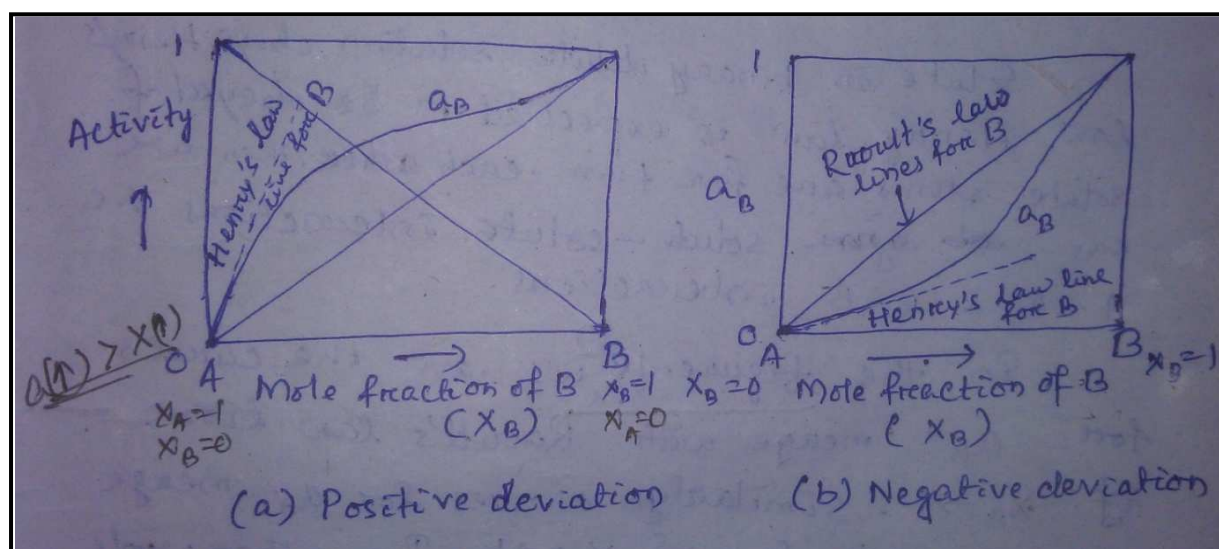 1
Activity
Henry's law
line for B
a_B
0
a(↑) > X(↑)
A
B
Mole fraction of B
(X_B)
x_A=1
x_B=0
x_B=1
x_A=0
(a) Positive deviation
1
a_B
Raoult's law
lines for B
a_B
Henry's law line
for B
0
A
B
x_B=1
X_B=0
Mole fraction of B
(X_B)
(b) Negative deviation